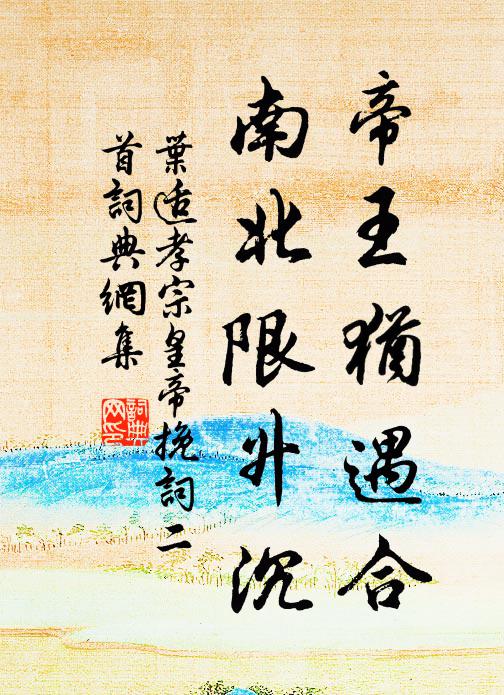 帝王猶遇合
南北限升沉
葉适孝宗皇帝挽詞二
首詞典網集
詞典網印